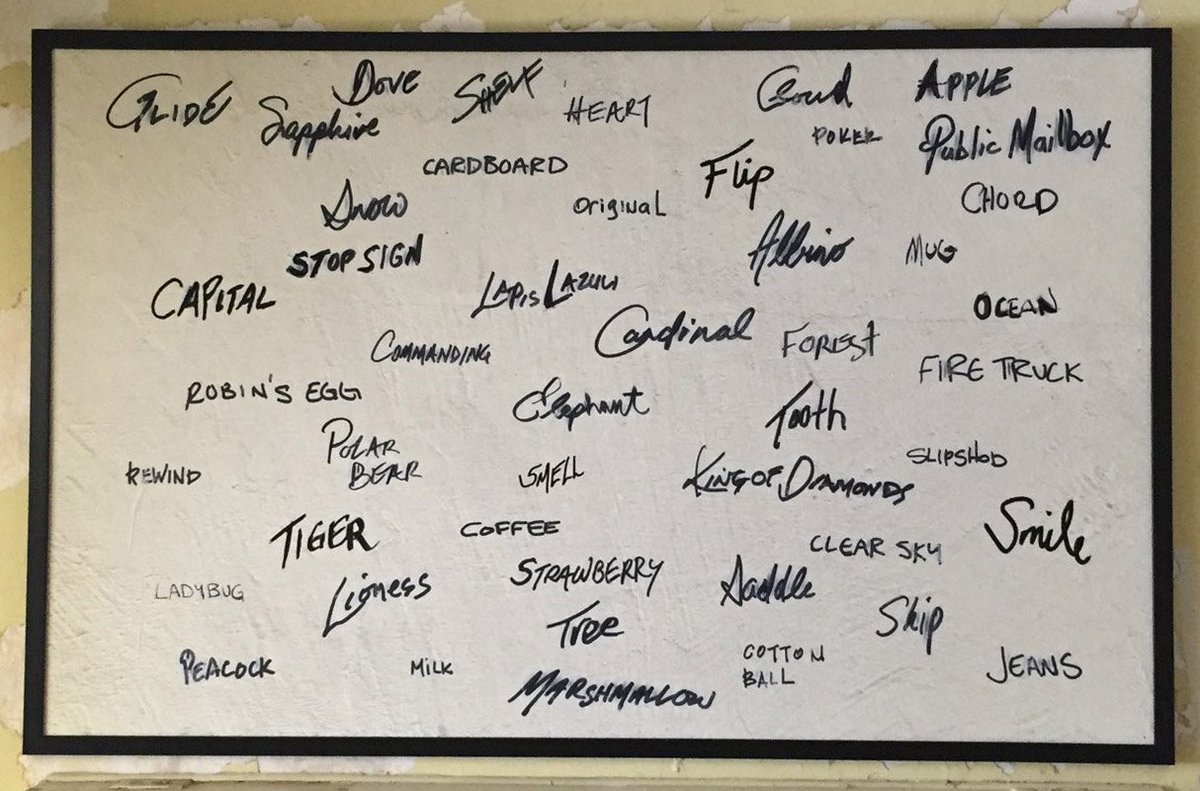 GLIDE
Dove
SHELF
Sapphire
HEART
Cloud
APPLE
POKER
Public Mailbox
CARDBOARD
Flip
Snow
original
CHORD
STOP SIGN
Albino
MUG
CAPITAL
LAPIS LAZULI
OCEAN
Cardinal
COMMANDING
FOREST
FIRE TRUCK
ROBIN'S EGG
Elephant
Tooth
POLAR
BEAR
REWIND
SMELL
KING OF DIAMONDS
SLIPSHOD
TIGER
COFFEE
Smile
CLEAR SKY
STRAWBERRY
LADYBUG
Lioness
Saddle
Skip
Tree
PEACOCK
MILK
COTTON
BALL
JEANS
MARSHMALLOW